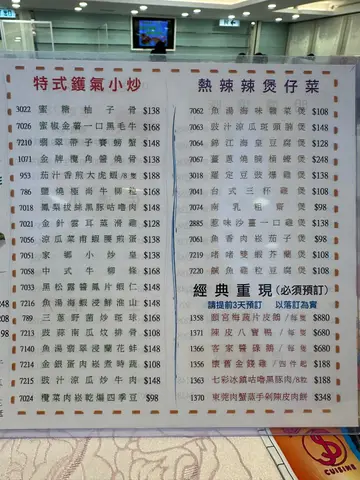 特式鑊氣小炒
3022 蜜糖柚子骨 $138
7026 蜜椒金薯一口黑毛牛 $168
7210 翡翠帶子賽螃蟹 $148
1071 金牌欖角醬燒骨 $148
953 茄汁香煎大虎蝦/每隻 $188
786 鹽燒極尚牛柳粒 $168
7018 鳳梨拔絲黑豚咕嚕肉 $148
7021 金針雲耳蒸滑雞 $128
7056 涼瓜菜甫蝦腰煎蛋 $128
7051 家鄉小炒皇 $138
7058 中式牛柳條 $168
7033 黑松露醬鳳片蝦仁 $148
7216 魚湯海蝦浸鮮淮山 $148
789 三蔥野菌炒斑球 $168
7213 豉蒜南瓜炆排骨 $108
7209 魚湯翡翠浸蘭花蚌 $148
7214 金銀蛋肉崧煮時蔬 $108
7215 豉汁涼瓜炒牛肉 $148
7024 欖菜肉崧乾煸四季豆 $98
熱辣辣煲仔菜
7062 魚湯海味雜菜煲 $108
7063 豉汁涼瓜斑頭腩煲 $148
7064 錦江海皇豆腐煲 $128
7067 薑蔥燒腩楨鰻煲 $148
3018 羅定豆豉爆雞煲 $138
7041 台式三杯雞煲 $108
7074 南乳粗齋煲 $98
2885 惹味沙薑一口雞煲 $138
7061 魚香肉崧茄子煲 $98
7219 啫啫雙蝦芥蘭煲 $108
7220 鹹魚雞粒豆腐煲 $108
經典重現(必須預訂)
請提前3天預訂 以落訂為實
1358 顏宮海蔬片皮鵝/每隻 $880
1371 陳皮八寶鴨/每隻 $680
1366 客家醬碌鵝/每隻 $680
1356 懷舊金錢雞/四件起 $188
1363 七彩冰鎮咕嚕黑豚肉/8粒 $188
1370 東莞肉蟹蒸手剁陳皮肉餅 $348
CUISINE